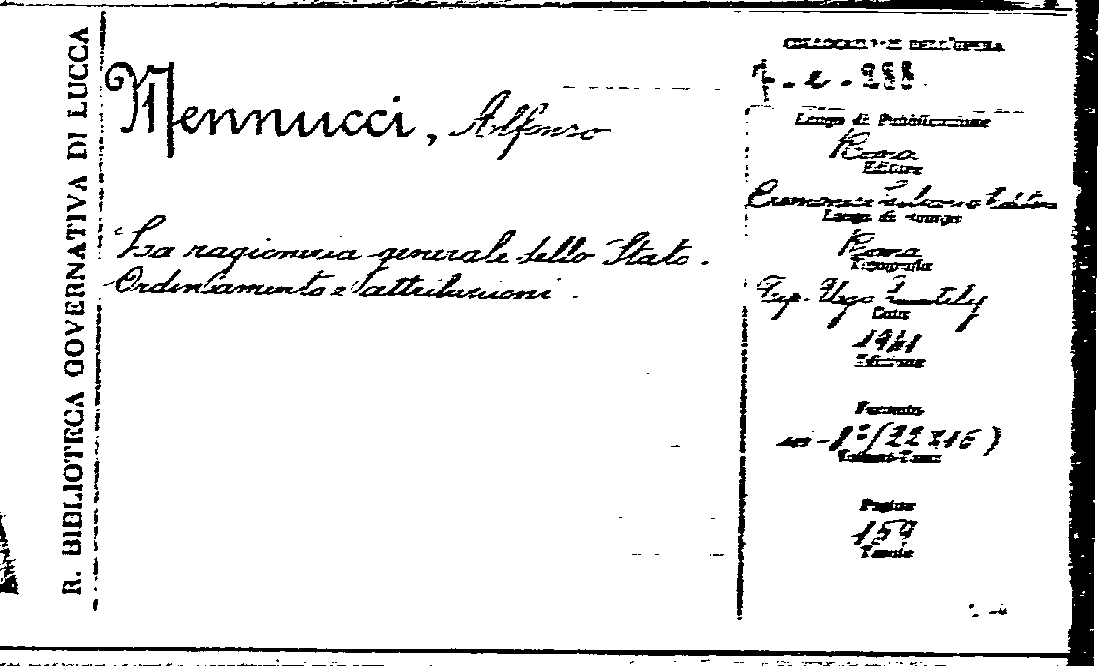 R. BIBLIOTECA GOVERNATIVA DI LUCCA
Mennucci, Alfonso
La ragioneria generale dello Stato.
Ordinamento e attribuzioni.
COLLOCAZIONE DELL'OPERA
Luogo di Pubblicazione
Roma
Editore
Cremonese Libraio Editore
Luogo di stampa
Roma
Tipografia
Tip. Ugo
Data
1941
Edizione
Formato
in-8º (22x16)
Pagine
159
Tavole